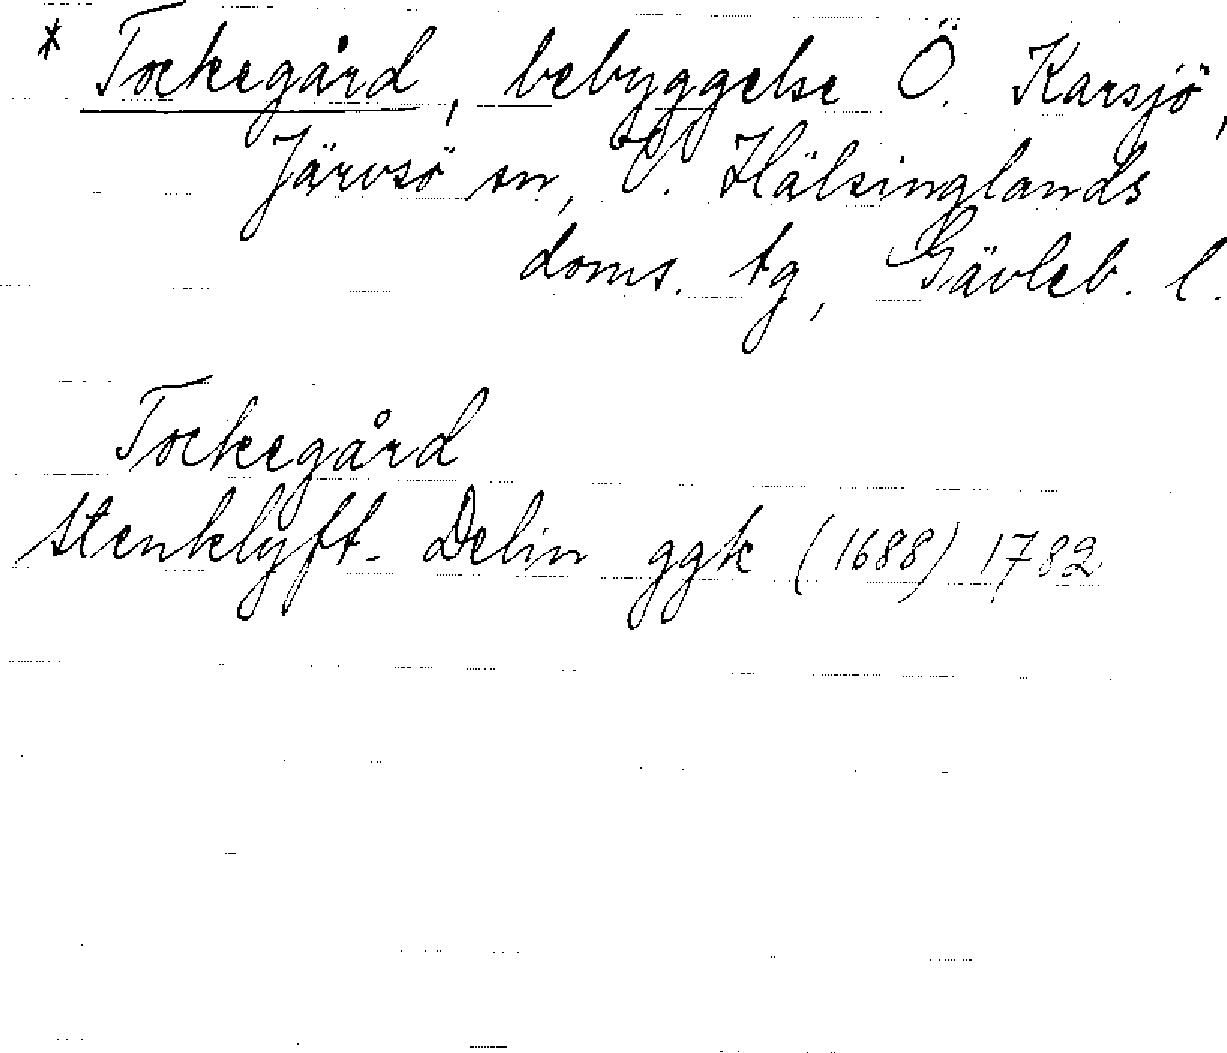 * Tockegård, bebyggelse Ö. Karsjö,
Järvsö sn, V. Hälsinglands
doms. tg, Gävleb. l.
Tockegård
Stenklyft. Delin ggk (1688) 1782